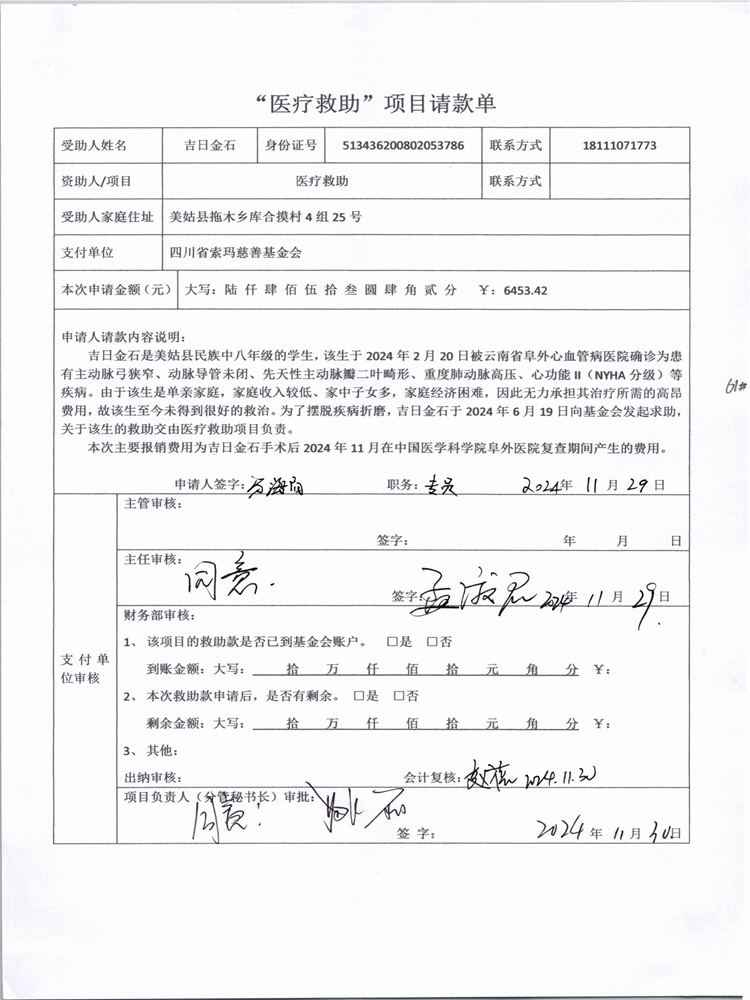 “医疗救助”项目请款单
受助人姓名 吉日金石 身份证号 513436200802053786 联系方式 18111071773
资助人/项目 医疗救助 联系方式
受助人家庭住址 美姑县拖木乡库合摸村 4 组 25 号
支付单位 四川省索玛慈善基金会
本次申请金额（元） 大写：陆 仟 肆 佰 伍 拾 叁 圆 肆 角 贰 分 ￥：6453.42
申请人请款内容说明：
吉日金石是美姑县民族中八年级的学生，该生于 2024 年 2 月 20 日被云南省阜外心血管病医院确诊为患
有主动脉弓狭窄、动脉导管未闭、先天性主动脉瓣二叶畸形、重度肺动脉高压、心功能 II（NYHA 分级）等
疾病。由于该生是单亲家庭，家庭收入较低、家中子女多，家庭经济困难，因此无力承担其治疗所需的高昂
费用，故该生至今未得到很好的救治。为了摆脱疾病折磨，吉日金石于 2024 年 6 月 19 日向基金会发起求助，
关于该生的救助交由医疗救助项目负责。
本次主要报销费用为吉日金石手术后 2024 年 11 月在中国医学科学院阜外医院复查期间产生的费用。
61#
申请人签字： 职务：专员 2024年 11 月 29 日
支付单位审核
主管审核：
签字： 年 月 日
主任审核：
同意.
签字： 2024年 11 月 29日
财务部审核：
1、 该项目的救助款是否已到基金会账户。 □是 □否
到账金额：大写： 拾 万 仟 佰 拾 元 角 分 ￥：
2、 本次救助款申请后，是否有剩余。 □是 □否
剩余金额：大写： 拾 万 仟 佰 拾 元 角 分 ￥：
3、 其他：
出纳审核： 会计复核： 2024.11.30
项目负责人（分管秘书长）审批：
同意！
签 字： 2024 年 11 月 30日